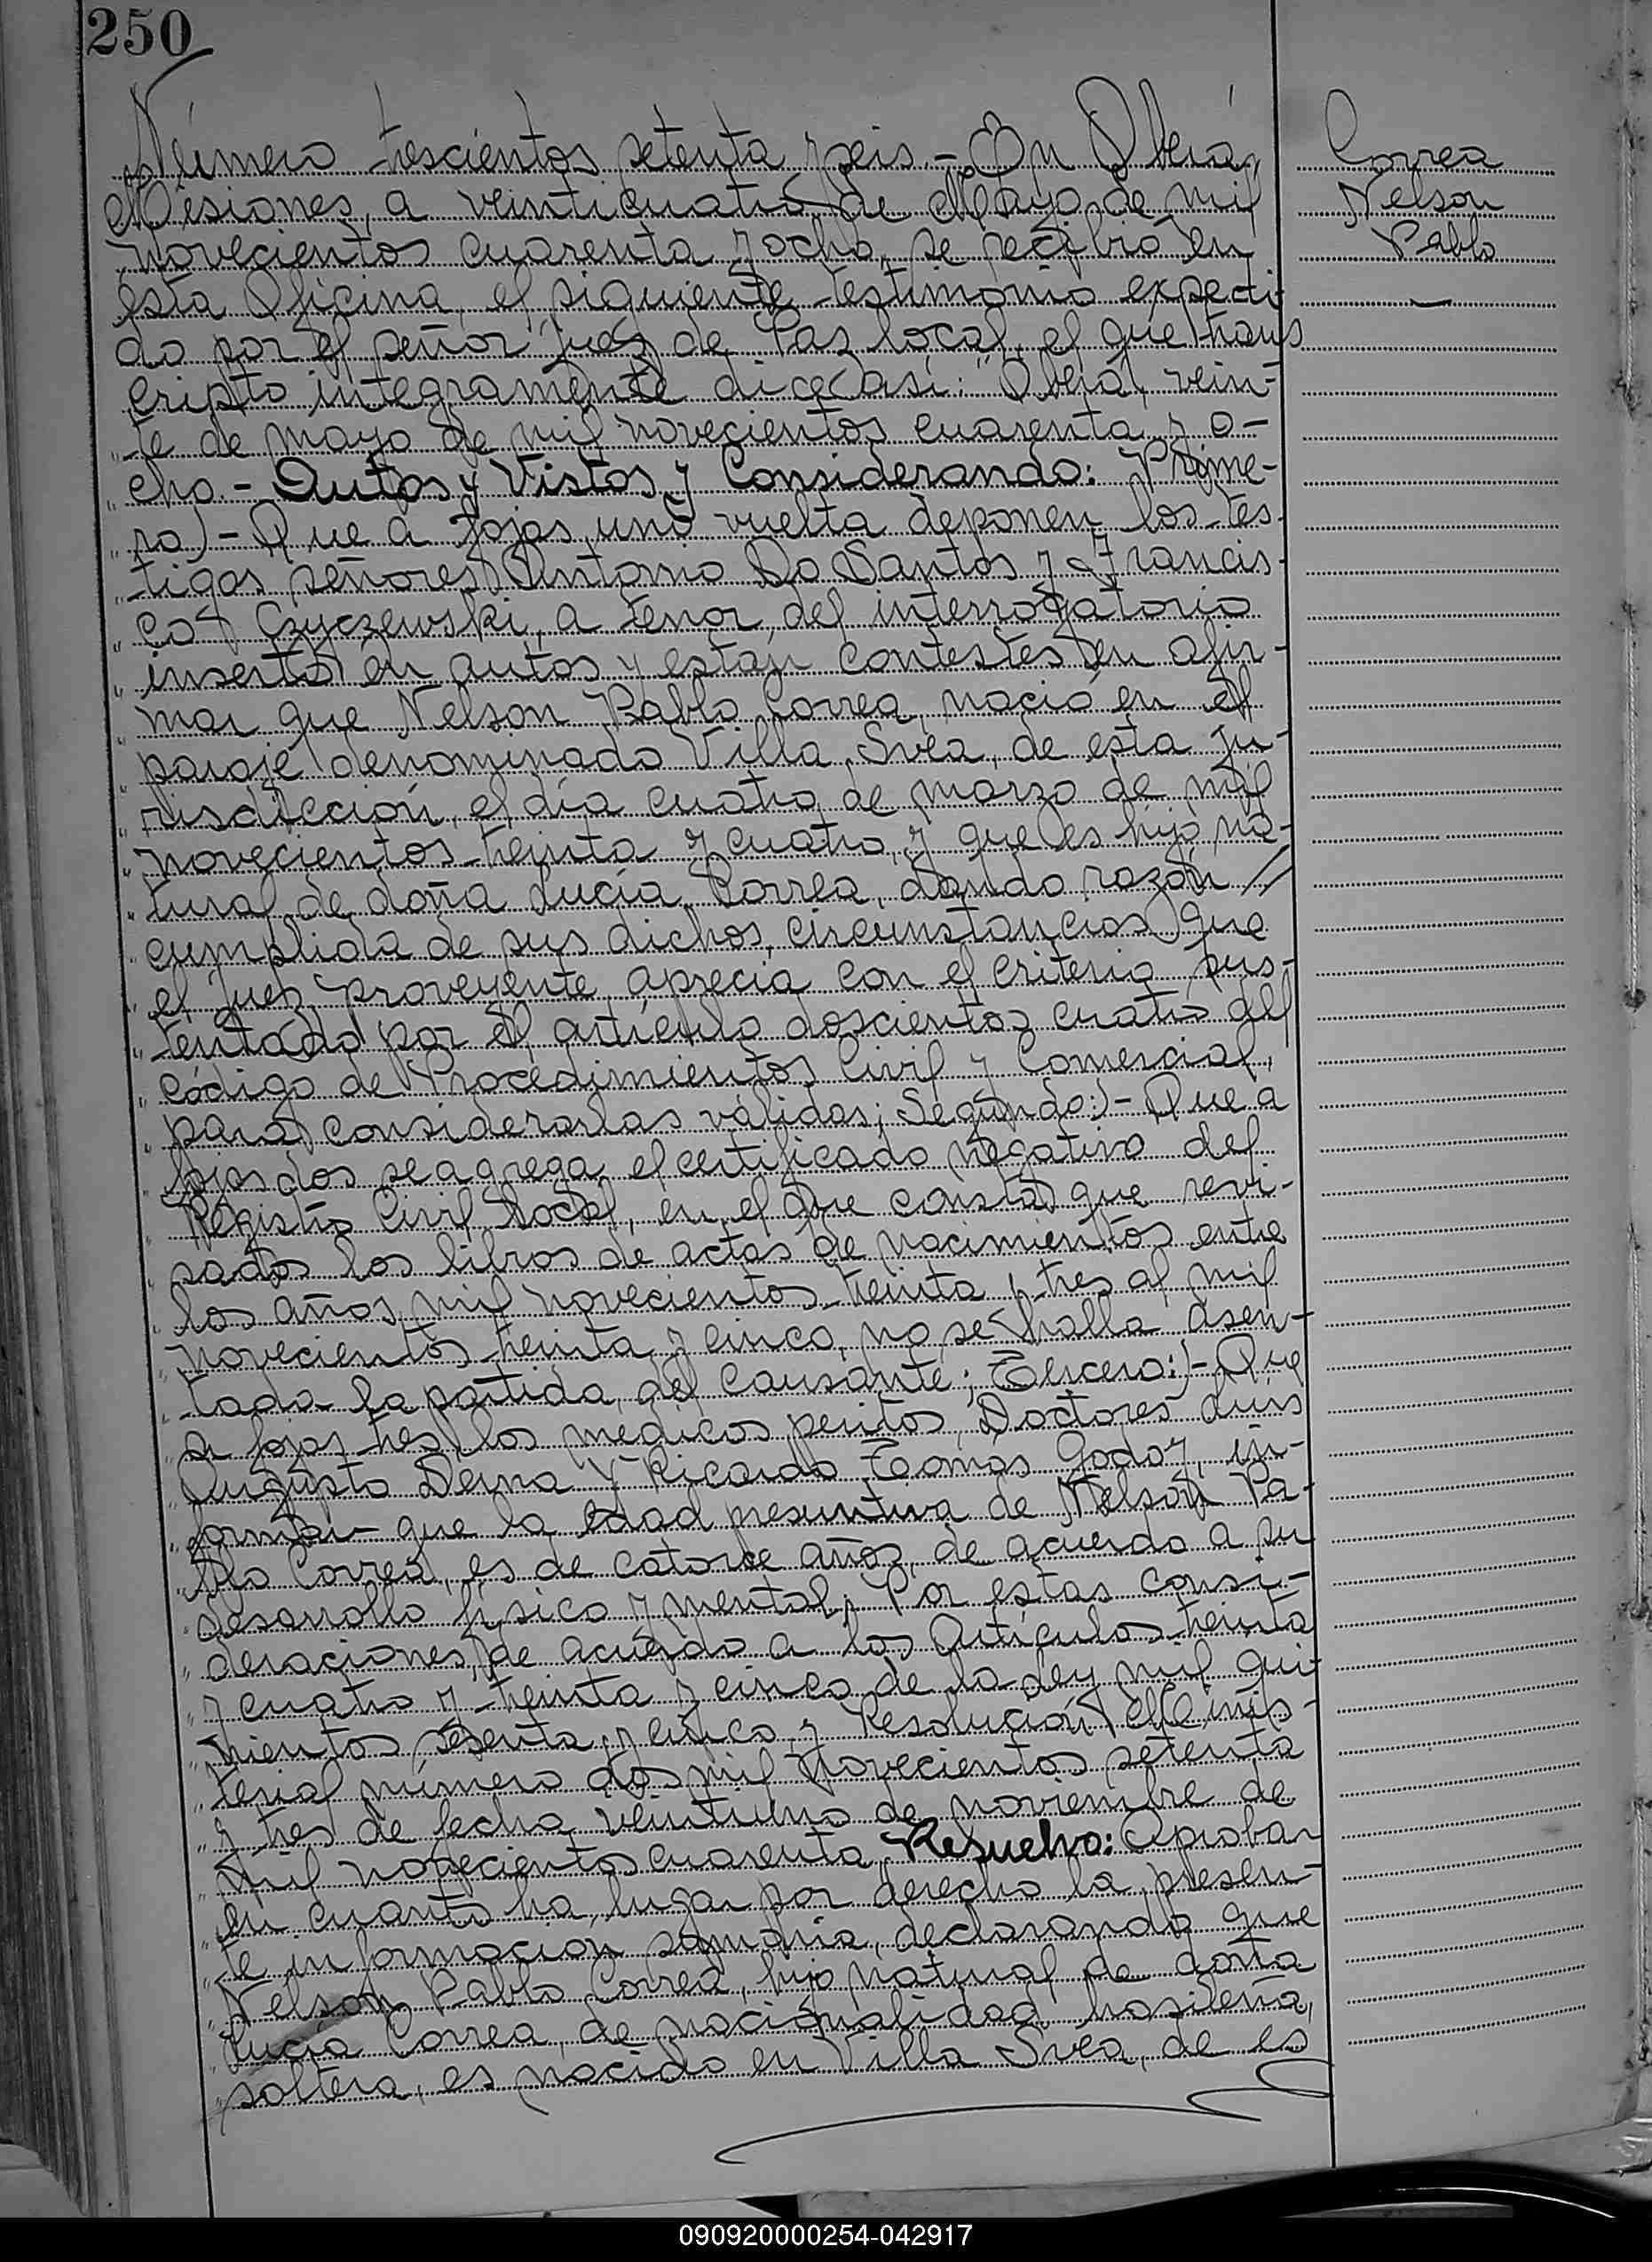 250
Número trescientos setenta y seis.- En Oberá,
Misiones, a veinticuatro de Mayo de mil
novecientos cuarenta y ocho, se recibió en
esta Oficina, el siguiente testimonio expedi-
do por el señor Juez de Paz local, el que trans
cripto integramente dice así: "Oberá, vein-
"te de mayo de mil novecientos cuarenta y o-
"cho.- Autos y Vistos y Considerando: Prime-
"ro)- Que a fojas uno vuelta deponen los tes-
"tigos señores Antonio Do Santos y Francis-
"co Czyczewski, a tenor del interrogatorio
"inserto en autos y están contestes en afir-
"mar que Nelson Pablo Correa, nació en el
"paraje denominado Villa Svea, de esta ju-
"risdicción, el día cuatro de marzo de mil
"novecientos treinta y cuatro, y que es hijo na-
"tural de doña Lucía Correa, dando razón //
"cumplida de sus dichos, circunstancias que
"el juez proveyente aprecia con el criterio sus-
"tentado por el artículo doscientos cuatro del
"código de Procedimientos Civil y Comercial,
"para considerarlas válidas; Segundo:)- Que a
"fojas dos se agrega el certificado negativo del
"Registro Civil local, en el que consta que revi-
"sados los libros de actas de nacimientos entre
"los años mil novecientos treinta y tres al mil
"novecientos treinta y cinco, no se halla asen-
"tada la partida del causante; Tercero:)- Que
"a fojas tres los médicos peritos, Doctores Luis
"Augusto Derna y Ricardo Tomas Godoy, in-
"forman que la edad presuntiva de Nelson Pa-
"blo Correa, es de catorce años, de acuerdo a su
"desarrollo físico y mental; Por estas consi-
"deraciones, de acuerdo a los artículos treinta
"y cuatro y treinta y cinco de la ley mil qui-
"nientos sesenta y cinco y Resolución Minis-
"terial número dos mil novecientos setenta
"y tres de fecha veintiuno de noviembre de
"mil novecientos cuarenta, Resuelvo: Aprobar
"en cuanto ha lugar por derecho la presen-
"te información sumaria, declarando que
"Nelson Pablo Correa, hijo natural de doña
"Lucía Correa, de nacionalidad brasileña,
"soltera, es nacido en Villa Svea, de es
Correa
Nelson
Pablo
090920000254-042917